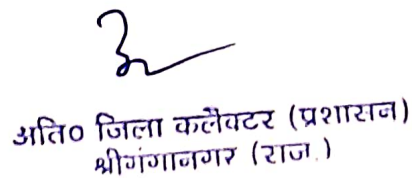 अति० जिला कलेक्टर (प्रशासन)
श्रीगंगानगर (राज.)